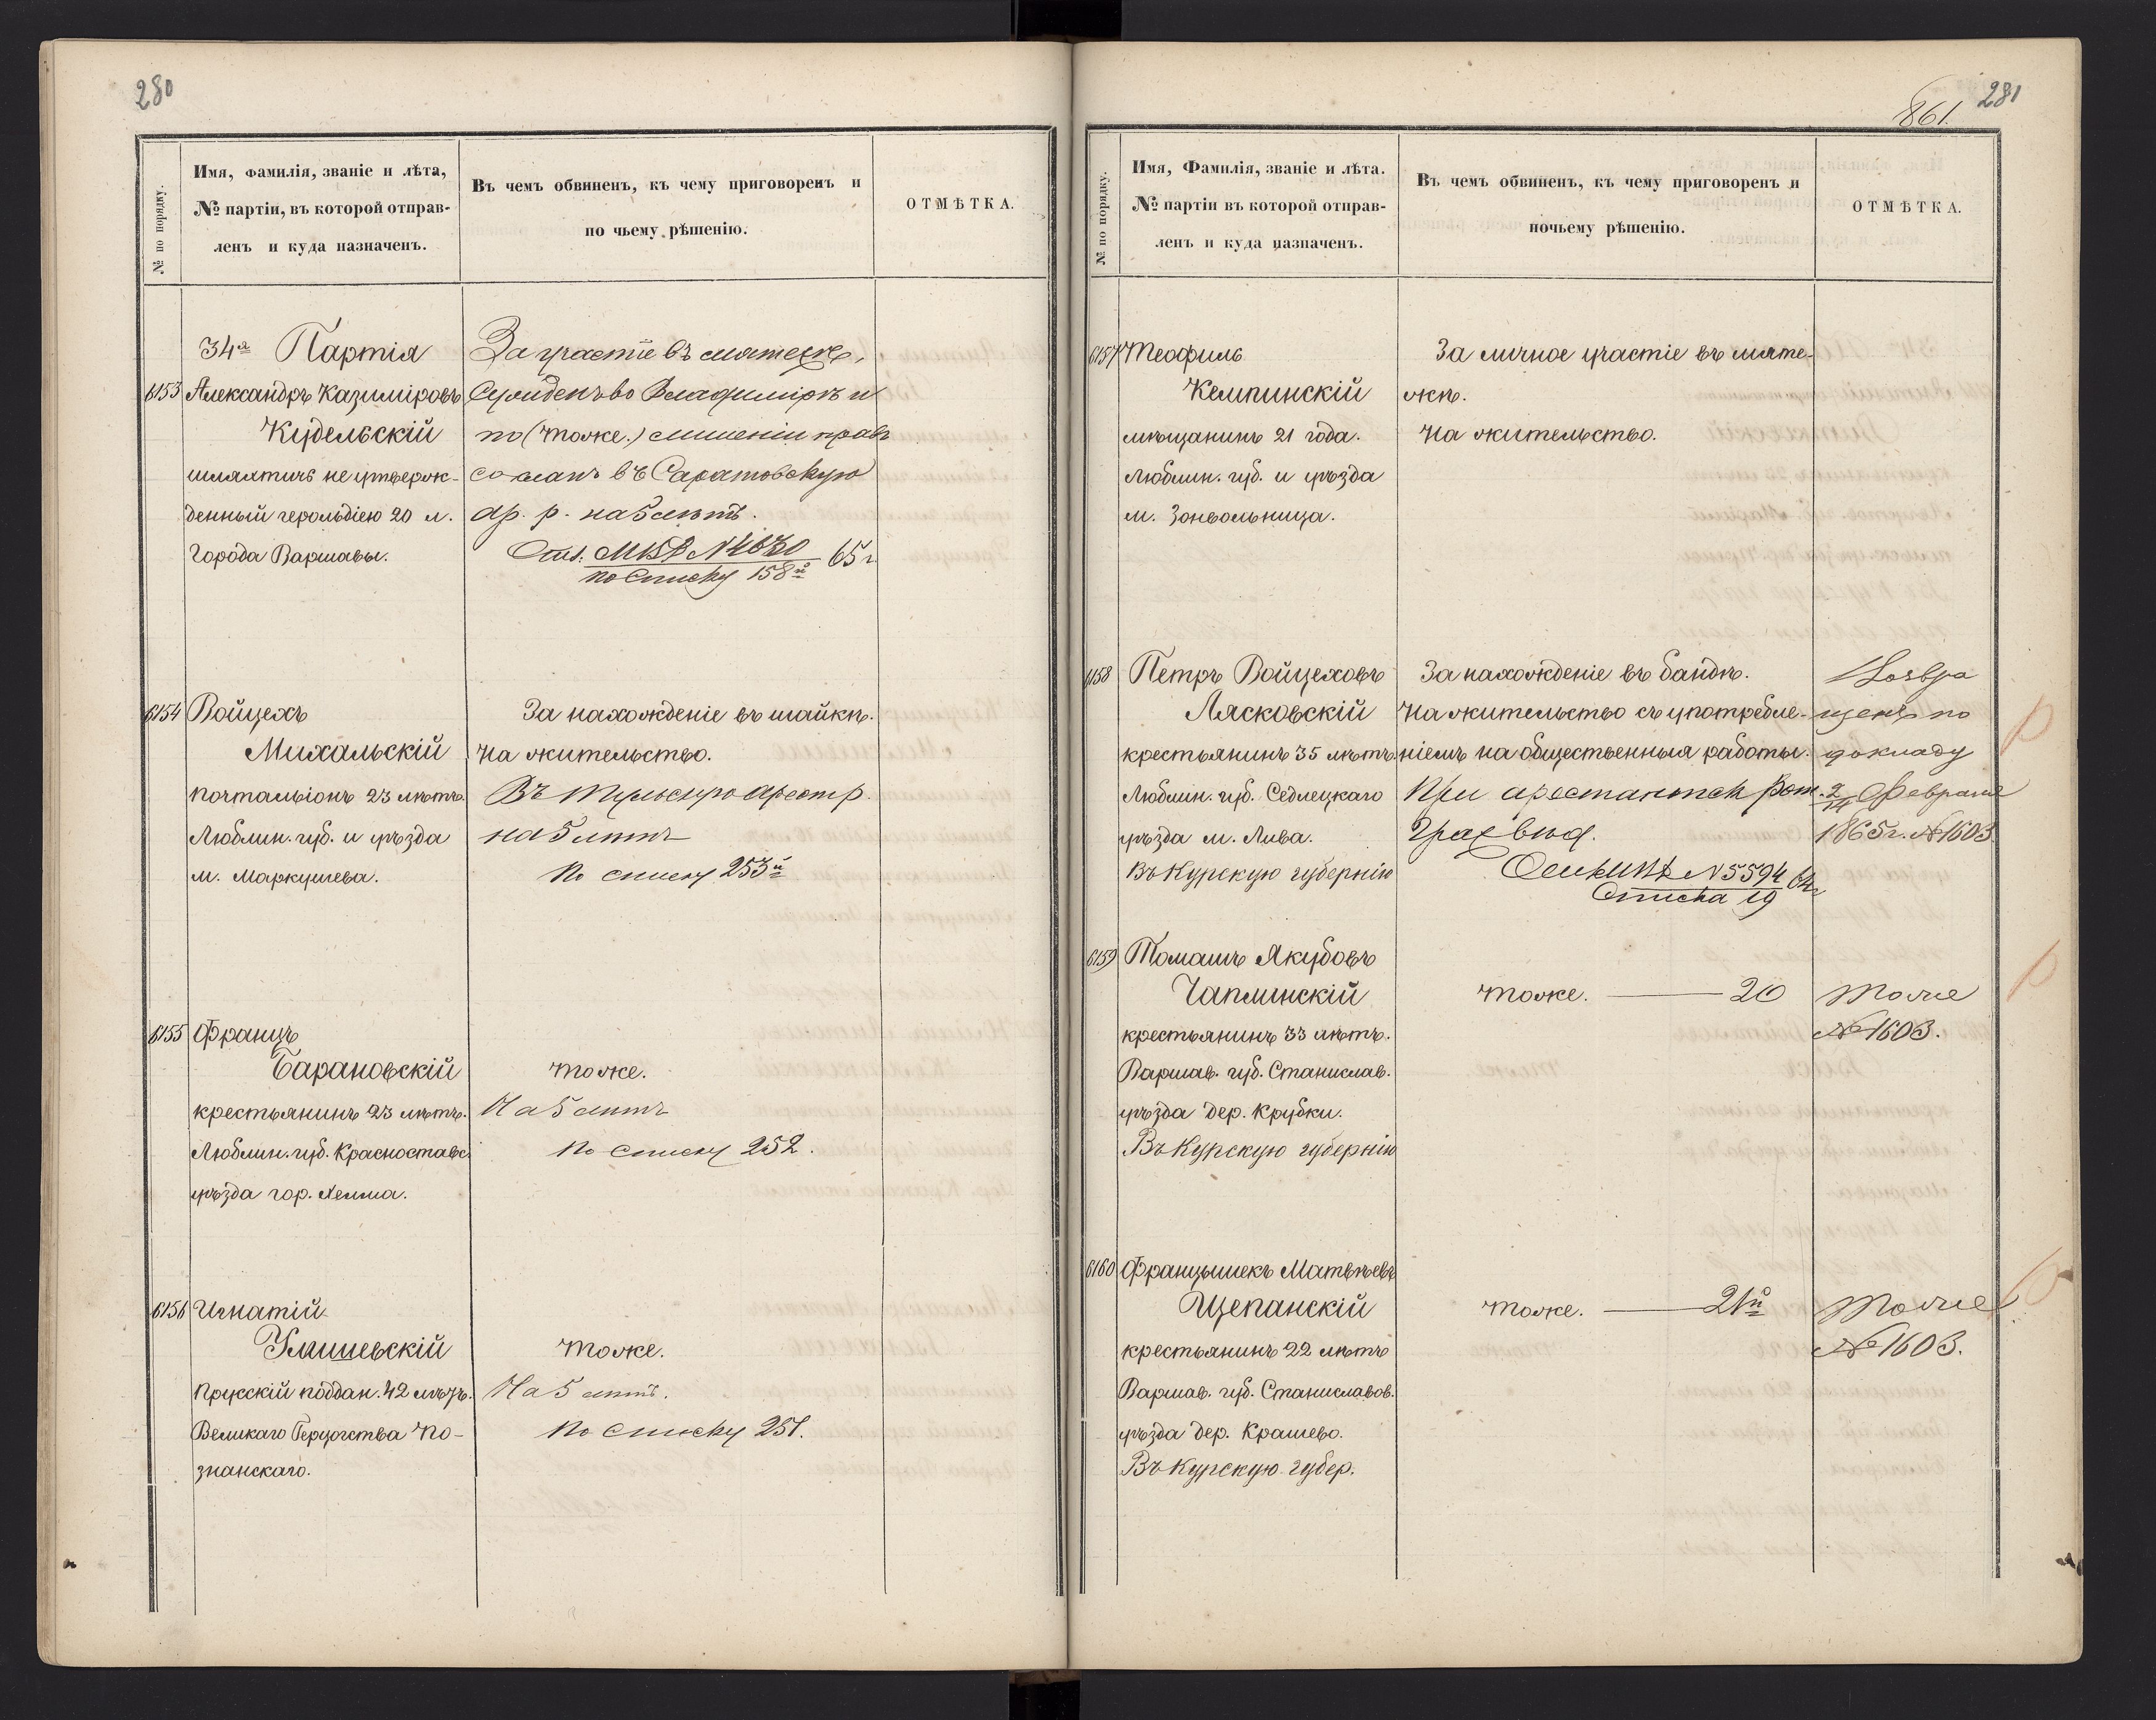 280
№ по порядку.
Имя, фамилія, званіе и лѣта,
№ партіи, въ которой отправ-
ленъ и куда назначенъ.
Въ чемъ обвиненъ, къ чему приговоренъ и
по чьему рѣшенію.
ОТМѢТКА.
34я Партія
6153 Александръ Казиміровъ
Кудельскій
шляхтичъ не утверж-
денный герольдіею 20 л.
Города Варшавы.
За участіе въ мятежѣ,
Сужденъ во Владимірѣ и
по (тоже.) лишеніи правъ
сосланъ въ Саратовскую
ар. р. на 5 лѣтъ.
МВД №4630 65 г.
по списку 158й
6154 Войцехъ
Михальскій
почтальіонъ 23 лѣтъ.
Люблин. губ. и уѣзда
м. Маркушева.
За нахожденіе въ шайкѣ.
На жительство.
Въ Тульскую арест р.
на 5 лѣтъ
По списку 253й
6155 Францъ
Барановскій
крестьянинъ 23 лѣтъ.
Люблин. губ. Красностав.
уѣзда гор. Хелма.
тоже.
На 5 лѣтъ
По списку 252.
6156 Игнатій
Улишевскій
прусскій поддан. 42 лѣтъ.
Великаго Герцогства По-
знанскаго.
тоже.
На 5 лѣтъ.
По списку 251.
281
861.
№ по порядку.
Имя, Фамилія, званіе и лѣта.
№ партіи въ которой отправ-
ленъ и куда назначенъ.
Въ чемъ обвиненъ, къ чему приговоренъ и
почьему рѣшенію.
ОТМѢТКА.
6157 Теофиль
Кемпинскій
мѣщанинъ 21 года.
Люблин. губ. и уѣзда
м. Зонвольница.
За личное участіе въ мяте-
жѣ.
На жительство.
6158 Петръ Войцеховъ
Лясковскій
крестьянинъ 35 лѣтъ.
Люблин. губ. Седлецкаго
уѣзда м. Лива.
Въ Курскую губернію
За нахожденіе въ бандѣ.
На жительство съ употребле-
ніемъ на общественныя работы.
При арестантск рот.
Граж вѣд.
№5594 64 г
Списка 19
Возвра
щенъ по
докладу
2/14 Февраля
1865 г. №1603.
6159 Томашъ Якубовъ
Чаплинскій
крестьянинъ 33 лѣтъ.
Варшав. губ. Станислав.
уѣзда дер. Крубки.
Въ Курскую губернію
тоже. — 20
тоже
№1603.
6160 Францышекъ Матвѣевъ
Щепанскій
крестьянинъ 22 лѣтъ
Варшав. губ. Станиславов.
уѣзда дер. Крашево.
Въ Курскую губер.
тоже. — 21й
тоже
№1603.